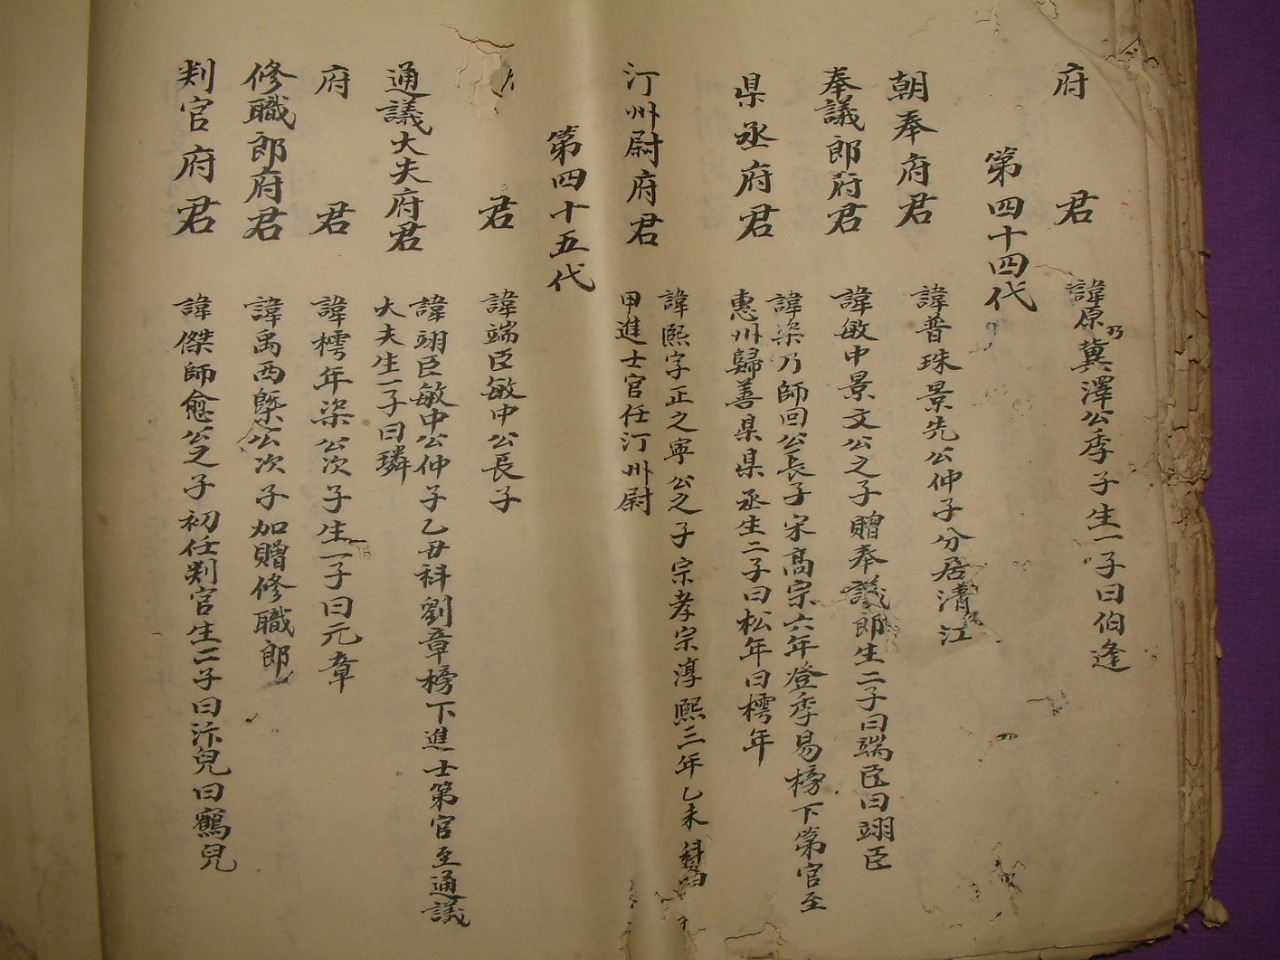 府君
諱原乃冀澤公季子生一子曰伯逢
第四十四代
朝奉府君
諱普珠景先公仲子分居清江
奉議郎府君
諱敏中景文公之子贈奉議郎生二子曰端臣曰翊臣
県丞府君
諱梁乃師回公長子宋高宗六年登季易榜下第官至
惠州歸善県県丞生二子曰松年曰樗年
汀州尉府君
諱熙字正之寧公之子宗孝宗淳熙三年乙未科
甲進士官任汀州尉
第四十五代
君
諱端臣敏中公長子
通議大夫府君
諱翊臣敏中公仲子乙丑科劉章榜下進士第官至通議
大夫生一子曰璘
府君
諱樗年梁公次子生一子曰元章
修職郎府君
諱禹西槩公次子加贈修職郎
判官府君
諱傑師愈公之子初任判官生二子曰汴兒曰鶴兒